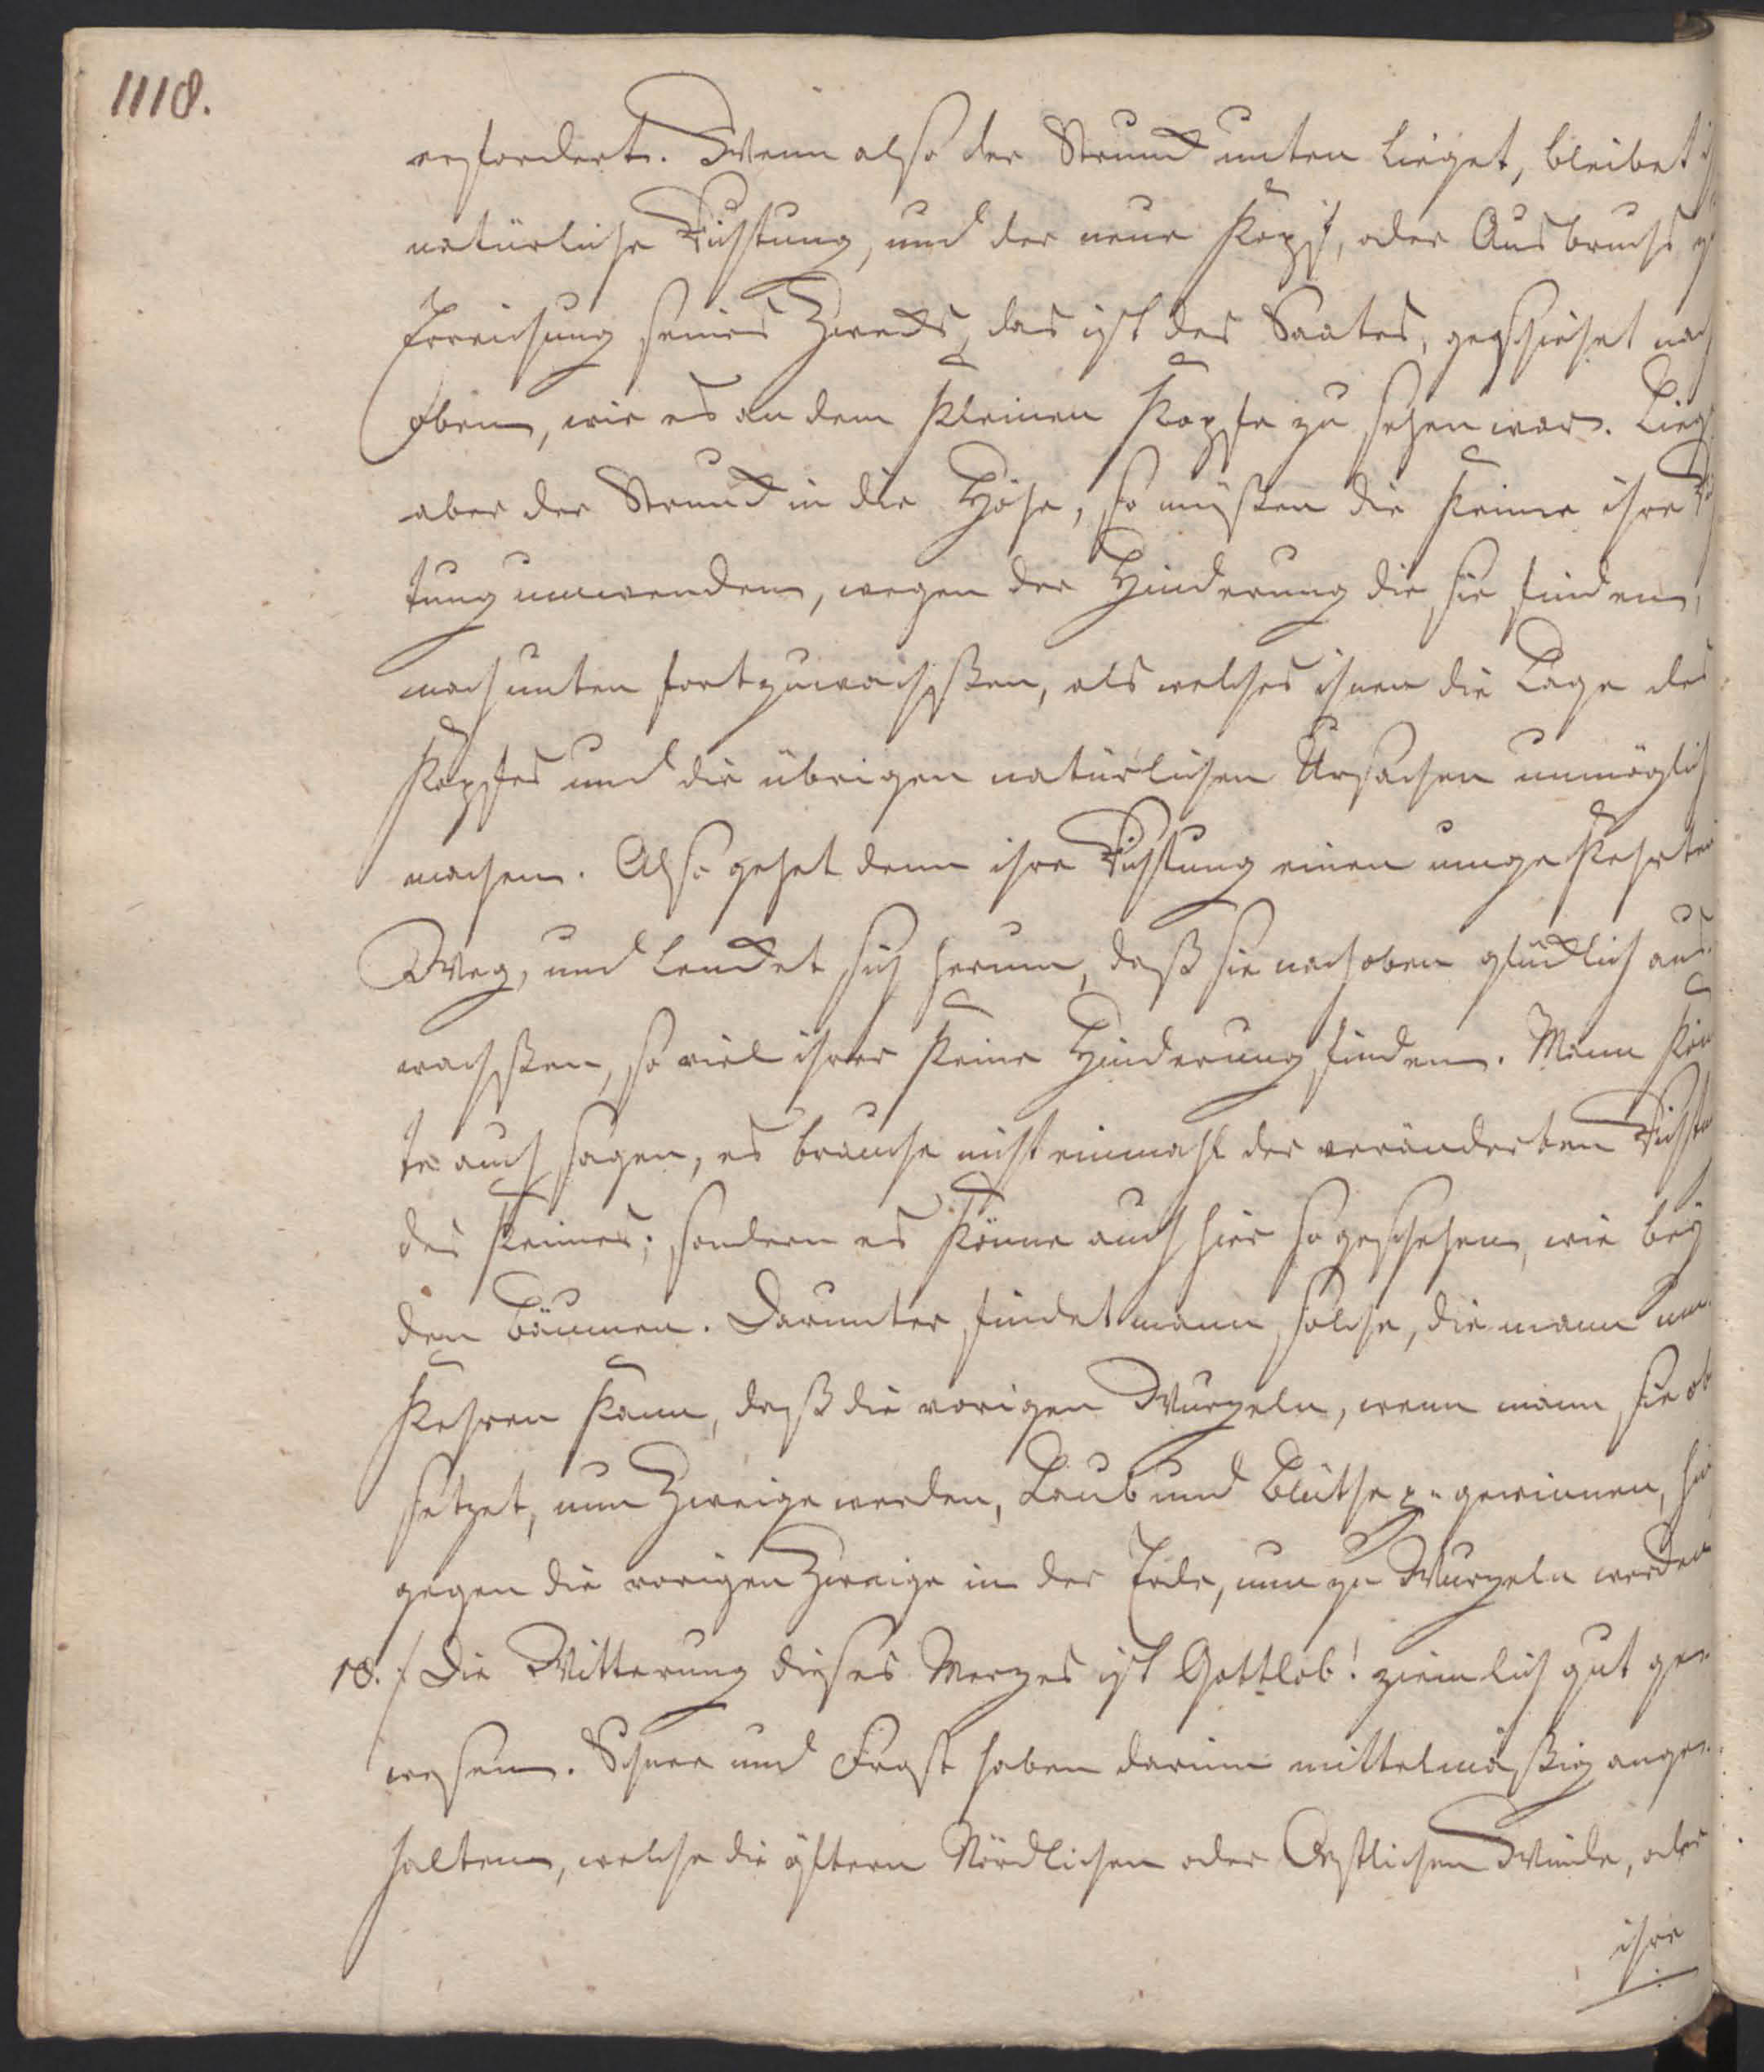 1118.
erfordert. Wenn also der Strunck unten lieget, bleibet
natürliche Richtung, und der neue Kopf, oder Ausbruch
Erreichung seines Zwecks, das ist des Saates, geschiehet nach
oben, wie es an dem kleinen Kopfe zu sehen war. Liegt
aber der Strunck in die Höhe, so müßen die Keime ihre
tung umwenden, wegen der Hinderung die sie finden,
nach unten fortzuwachßen, als welches ihnen die Lage des
Kopfes und die übrigen natürlichen Ursachen unmöglich
machen. Also gehet denn ihre Richtung einen umgekehrten
Weg, und lencket sich herum, daß sie nach oben glücklich aus-
wachßen, so viel ihrer keine Hinderung finden. Mann kön
te auch sagen, es brauche nicht einmahl der veränderten Richtu
des Keimes; sondern es könne auch hier so geschehen, wie bey
den Bäumen. Darunter findet mann solche, die mann um-
kehren kann, daß die vorigen Wurzeln, wenn mann sie ob
setzet, nun Zweige werden, Laub und Blüthe gewinnen, hin
gegen die vorigen Zweige in der Erde, nun zu Wurzeln werden
18. / Die Witterung dieses Merzes ist Gottlob! ziemlich gut ge-
wesen. Schnee und Frost haben darinn mittelmäßig ange-
halten, welche die öftern Nördlichen oder Oestlichen Winde, oder
ihre